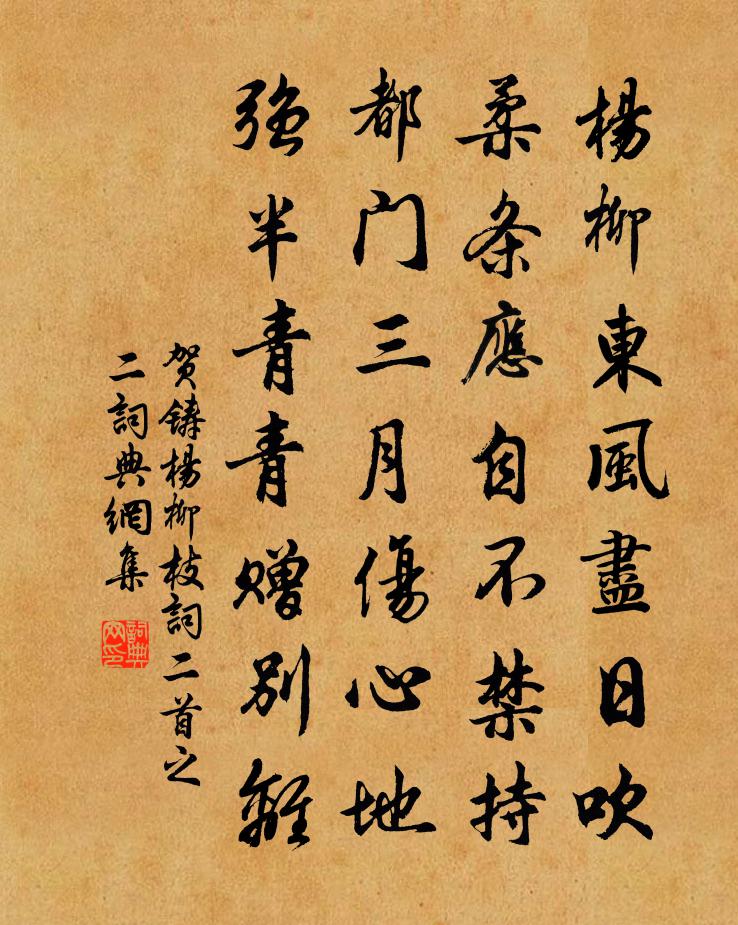 楊柳東風盡日吹
柔条應自不禁持
都门三月傷心地
强半青青赠别離
贺鑄楊柳枝詞二首之
二詞典網集
詞典
网印